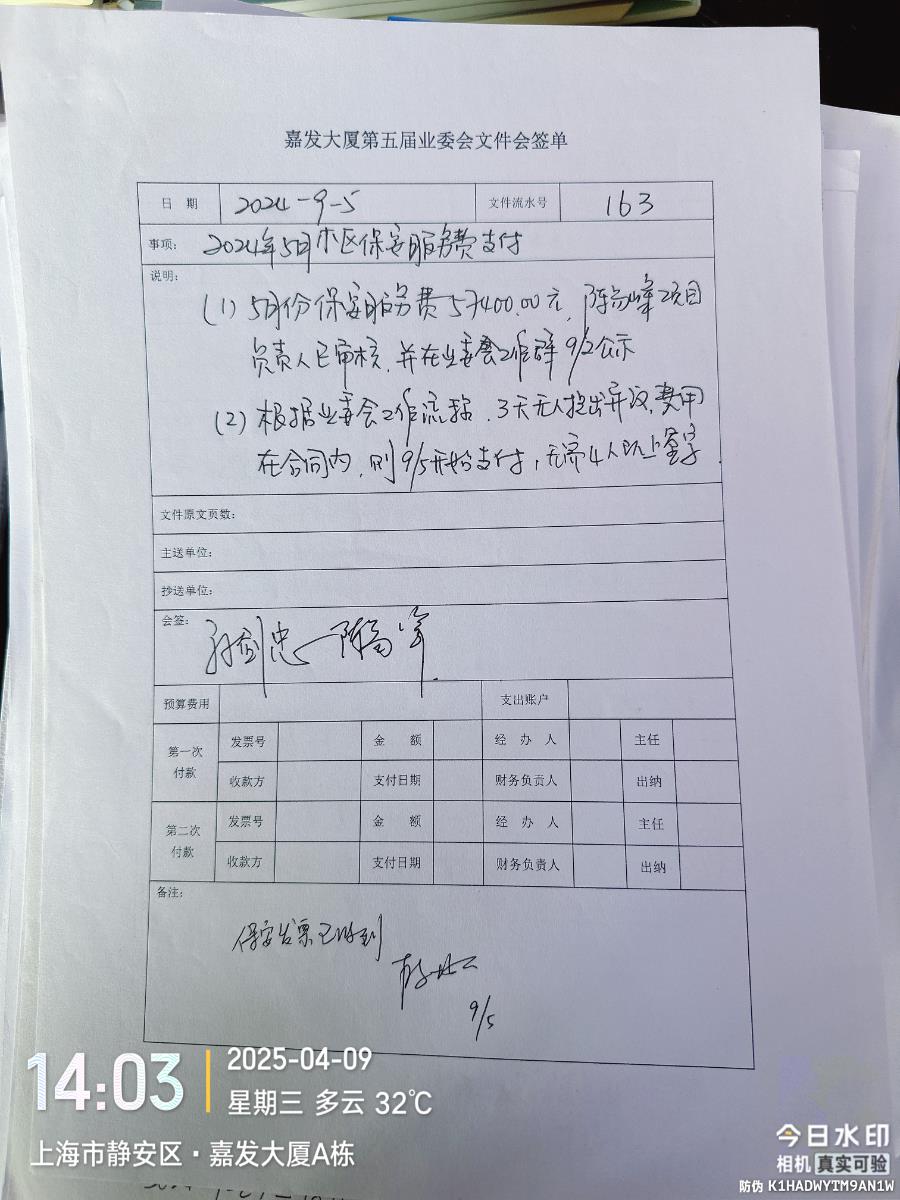 嘉发大厦第五届业委会文件会签单
日 期 2024-9-5 文件流水号 163
事项: 2024年5月小区保安服务费支付
说明:
(1) 5月份保安服务费57400.00元, 陈高峰项目
负责人已审核, 并在业委会工作群9/2公示
(2) 根据业委会工作流程, 3天无人提出异议, 费用
在合同内, 则9/5开始支付, 无需4人以上签字.
文件原文页数:
主送单位:
抄送单位:
会签: 陈高峰
预算费用 支出账户
第一次付款 发票号 金 额 经 办 人 主任
收款方 支付日期 财务负责人 出纳
第二次付款 发票号 金 额 经 办 人 主任
收款方 支付日期 财务负责人 出纳
备注:
保安发票已收到
9/5
14:03 2025-04-09
星期三 多云 32℃
上海市静安区·嘉发大厦A栋
今日水印
相机 真实可验
防伪 K1HADWYTM9AN1W